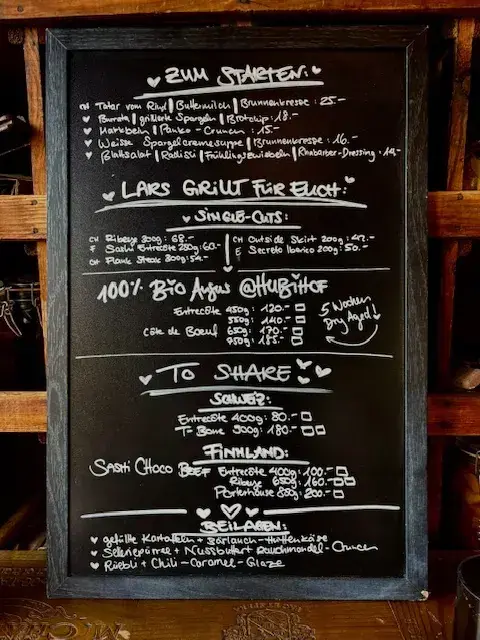 ZUM STARTEN:
CH Tatar vom Rind | Buttermilch | Brunnenkresse: 25.-
Burrata | grillierte Spargeln | Brotchip: 18.-
Markbein | Panko-Crunch: 15.-
Weisse Spargelcremesuppe | Brunnenkresse: 16.-
Blattsalat | Radiesli | Frühlingszwiebeln | Rhabarber-Dressing: 14.-
LARS GRILLT FÜR EUCH:
SINGLE-CUTS:
CH Ribeye 300g: 68.- CH Outside Skirt 200g: 47.-
F Sashi Entrecôte 250g: 60.- E Secreto Iberico 200g: 50.-
CH Flank Steak 300g: 54.-
100% Bio Angus @HUBIHOF
Entrecôte 450g: 120.-
550g: 140.-
Côte de Boeuf 650g: 170.-
750g: 185.-
5 Wochen
Dry Aged!
TO SHARE
SCHWEIZ:
Entrecôte 400g: 80.-
T-Bone 900g: 180.-
FINNLAND:
Sashi Choco BEEF Entrecôte 400g: 100.-
Ribeye 650g: 160.-
Porterhouse 850g: 200.-
BEILAGEN:
gefüllte Kartoffeln + Bärlauch-Hüttenkäse
Selleriepüree + Nussbutter Rauchmandel-Crunch
Rüebli + Chili-Caramel-Glaze